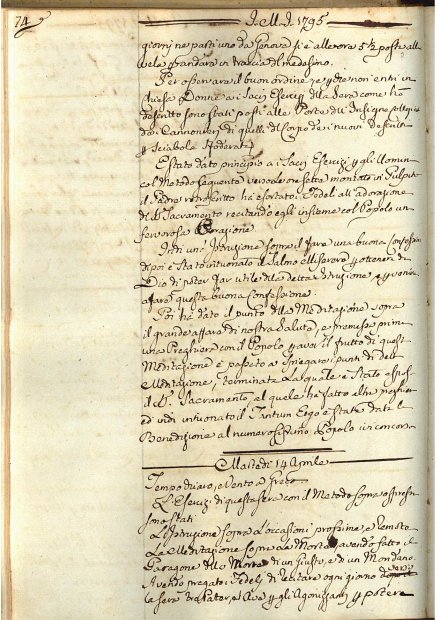 74 J. M. J. 1795
giorni ne parti uno da Genova si è allevora 5½ posto alla
vela per andare in traccia del medesimo.
Per osservare il buon ordine, e per che non entri in
Chiesa Donne a i Sacri Esercizj della Sera come ha
descritto sono stati posti alle Porte dell' Insigne Colleg.ta
dei Cannonieri di quelli del Corpo de i nuovi descritti
con Sciabole sfoderate
È stato dato principio a i Sacri Esercizi per gli Uomini
col Metodo seguente verso le ore sette montato in Pulpito
il Padre retroscritto ha esortato i Fedeli all' adorazione
del SS. Sacramento recitando egli insieme col Popolo una
fervorosa Orazione
Indi una Istruzione sopra il fare una buona Confessione
di poi è stato intuonato il Salmo Miserere per ottenere da
Dio di poter far utile della detta Istruzione e per venire
a fare questa buona Confessione
Poi ha dato il punto della Meditazione sopra
il grande affare di nostra Salute, e premessa prima
una Preghiera con il Popolo per aver il frutto di questa
Meditazione è passato a spiegare i punti di detta
Meditazione, terminata la quale è stato esposto
il SS. Sacramento, al quale ha fatto altre preghiere
ed indi intuonato il Tantum Ergo è stata data la
Benedizione al numerosissimo Popolo ivi concorso
Martedì 14 Aprile
Tempo chiaro, e Vento a Greco
Gl' Esercizj di questa sera con il Metodo sopra espresso
sono stati
L' Istruzione sopra l' occasioni prossime, e remote
La Meditazione sopra la Morte avendo fatto il
Paragone della Morte di un Giusto, e di un Mondano
Avendo pregato i Fedeli di recitare ogni giorno verso
la sera tre Pater, e Ave per gli Agonizzanti per potere